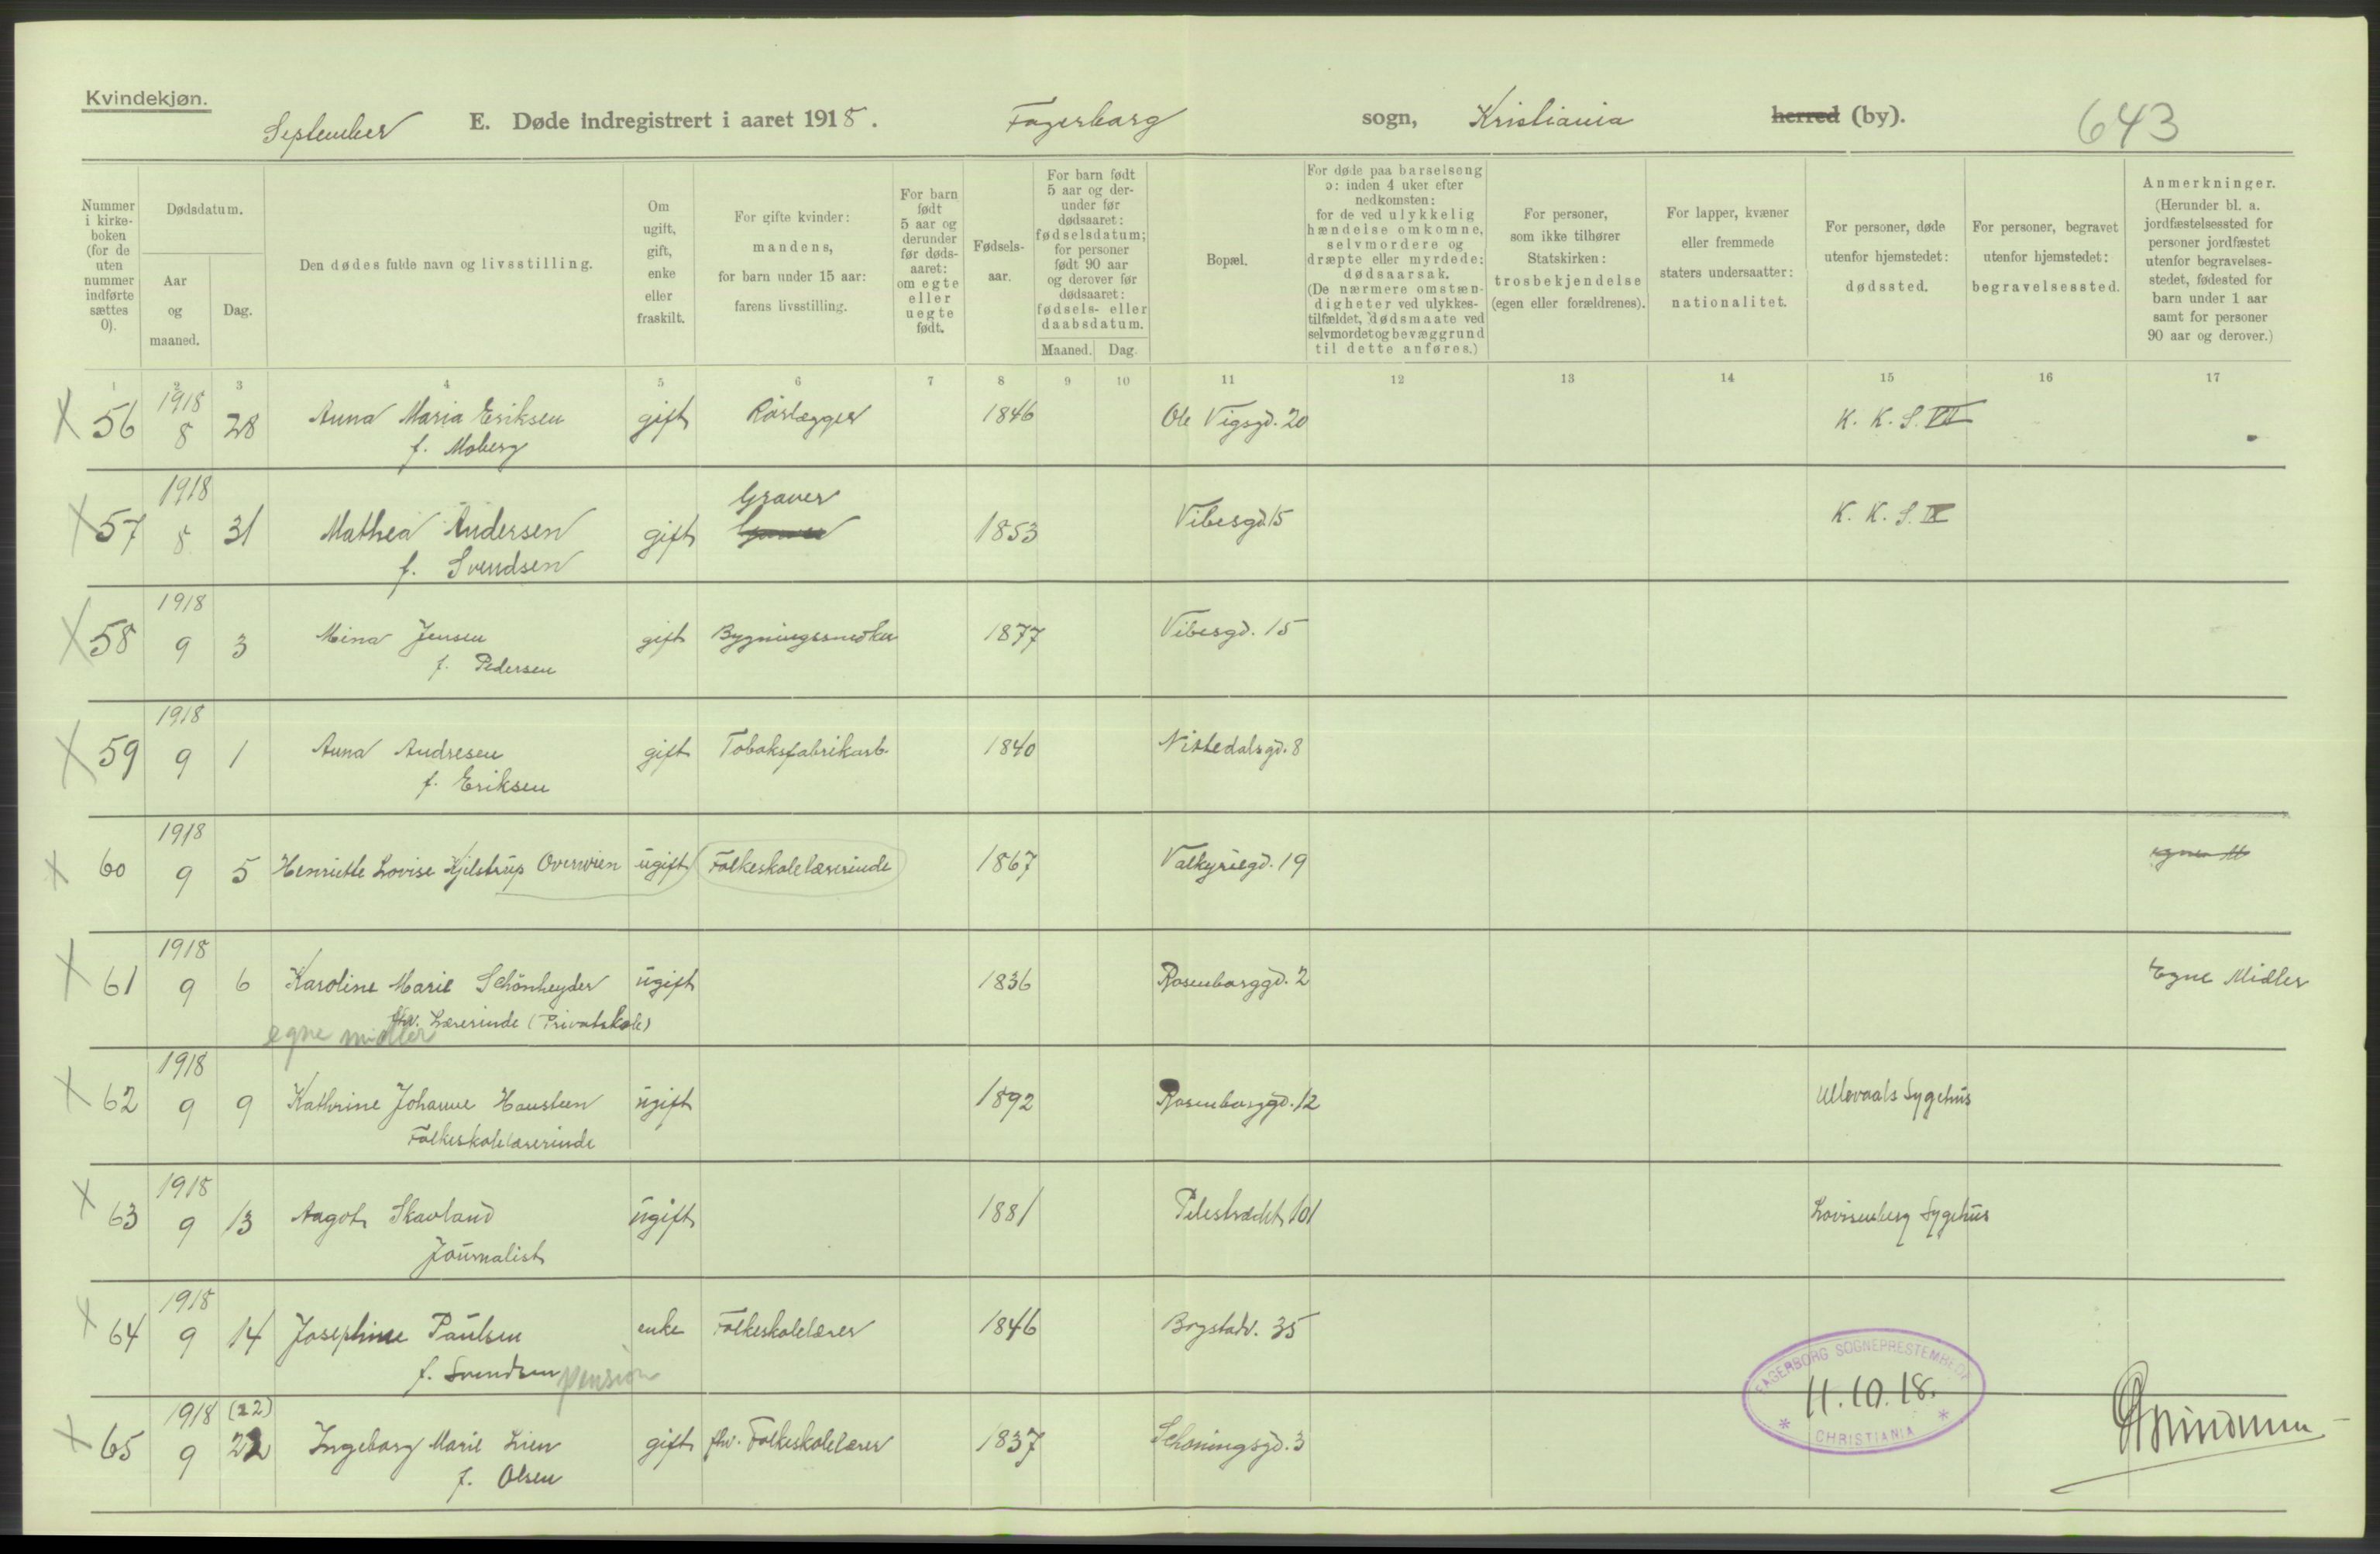 Kvindekjøn.
September E. Døde indregistrert i aaret 1918. Fagerborg sogn, Kristiania herred (by). 643
Nummer i kirke- boken (for de uten nummer indførte sættes 0).
Dødsdatum.
Aar og maaned.
Dag.
Den dødes fulde navn og livsstilling.
Om ugift, gift, enke eller fraskilt.
For gifte kvinder: mandens, for barn under 15 aar: farens livsstilling.
For barn født 5 aar og derunder før døds- aaret: om egte eller uegte født.
Fødsels- aar.
For barn født 5 aar og der- under før dødsaaret: fødselsdatum; for personer født 90 aar og derover før dødsaaret: fødsels- eller daabsdatum.
Maaned. Dag.
Bopæl.
For døde paa barselseng ɔ: inden 4 uker efter nedkomsten: for de ved ulykkelig hændelse omkomne, selvmordere og dræpte eller myrdede: dødsaarsak. (De nærmere omstæn- digheter ved ulykkes- tilfældet, dødsmaate ved selvmordet og bevæggrund til dette anføres.)
For personer, som ikke tilhører Statskirken: trosbekjendelse (egen eller forældrenes).
For lapper, kvæner eller fremmede staters undersaatter: nationalitet.
For personer, døde utenfor hjemstedet: dødssted.
For personer, begravet utenfor hjemstedet: begravelsessted.
Anmerkninger. (Herunder bl. a. jordfæstelsessted for personer jordfæstet utenfor begravelses- stedet, fødested for barn under 1 aar samt for personer 90 aar og derover.)
1 2 3 4 5 6 7 8 9 10 11 12 13 14 15 16 17
X 56 1918 8 28 Anna Maria Eriksen gift Rørlægger 1846 Ole Vigsgd. 20 K. K. S. VI
f. Moberg
X 57 1918 8 31 Mathea Andersen gift Graver 1853 Vibesgd. 15 K. K. S. IX
f. Svendsen
X 58 1918 9 3 Mina Jensen gift Bygningssnedker 1877 Vibesgd. 15
f. Pedersen
X 59 1918 9 1 Anna Andresen gift Tobaksfabrikarb. 1840 Nittedalsgd. 8
f. Eriksen
X 60 1918 9 5 Henriette Lovise Kjelstrup Overwien ugift Folkeskolelærerinde 1867 Valkyriegd. 19 egne M
X 61 1918 9 6 Karoline Marie Schönheyder ugift 1836 Rosenborggd. 2 Egne Midler
fhv. Lærerinde (Privatskole)
egne midler
X 62 1918 9 9 Kathrine Johanne Hansteen ugift 1892 Rosenborggd. 12 Ullevaals Sygehus
Folkeskolelærerinde
X 63 1918 9 13 Aagot Skavland ugift 1881 Pilestrædet 101 Lovisenberg Sygehus
Journalist
X 64 1918 9 14 Josephine Paulsen enke Folkeskolelærer 1846 Bogstadv. 35
f. Svendsen pension
X 65 1918 9 (22) 22 Ingeborg Marie Lien gift fhv. Folkeskolelærer 1837 Schøningsgd. 3
f. Olsen
FAGERBORG SOGNEPRESTEMBEDE
11.10.18.
* CHRISTIANIA *